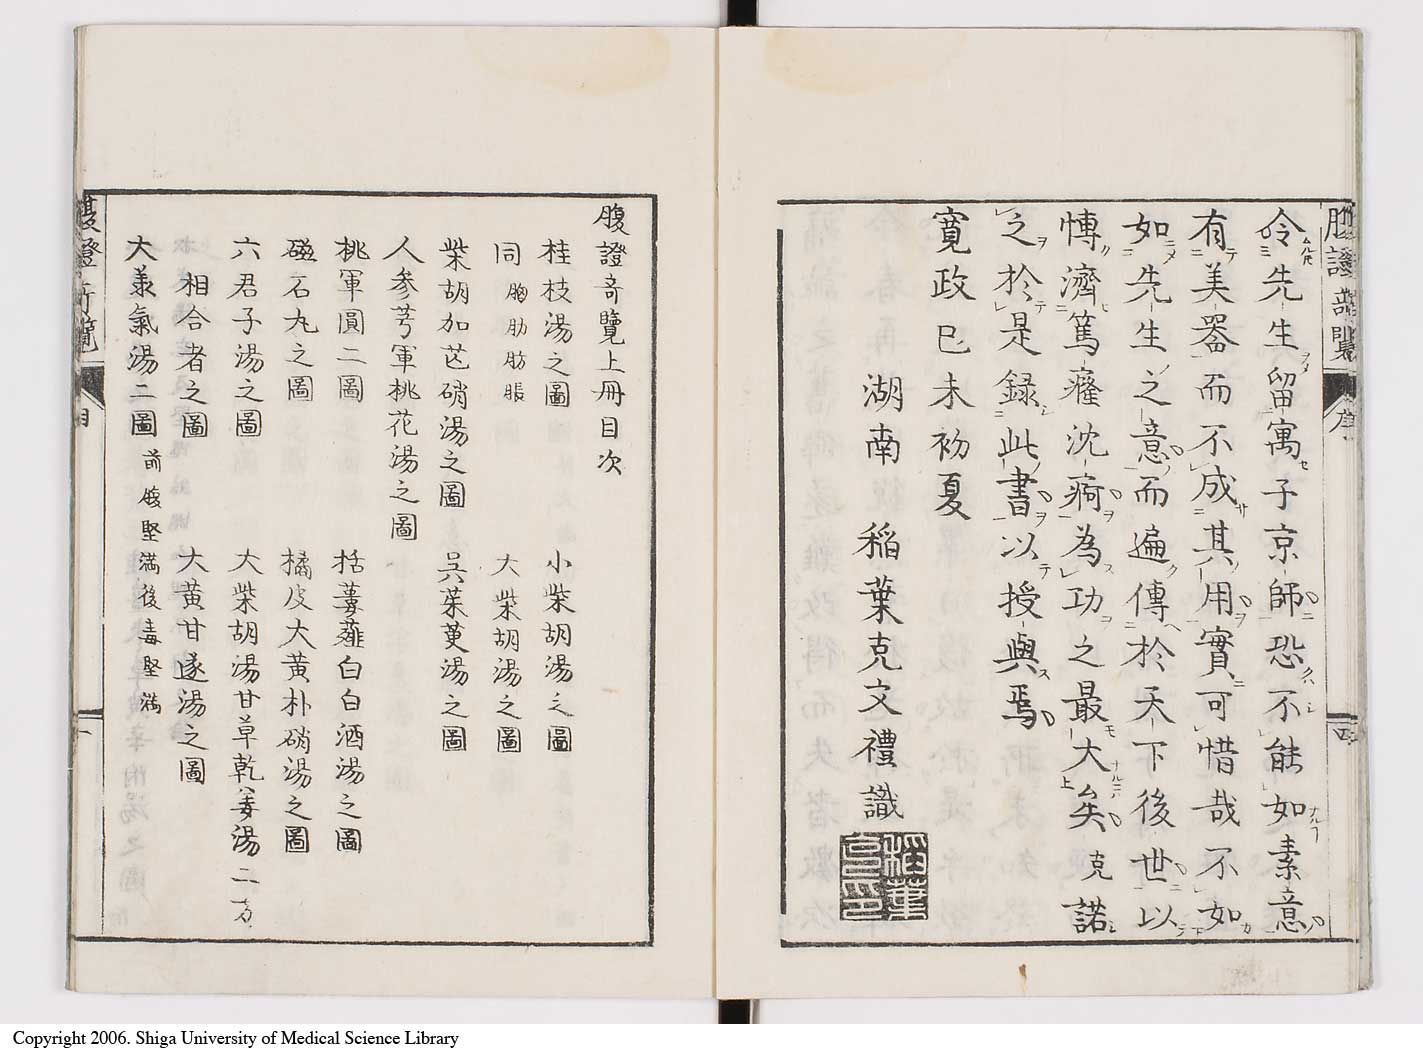 腹證奇覽
序
四
令先生留寓子京師恐不能如素意
有美器而不成其用實可惜哉不如
如先生之意而遍傳於天下後世以
博濟篤癃沈痾為功之最大矣克諾
之於是録此書以授與焉
寛政己未初夏
湖南 稲葉克文禮識
腹證奇覽上冊目次
桂枝湯之圖 小柴胡湯之圖
同胸肋肪脹 大柴胡湯之圖
柴胡加芒硝湯之圖 呉茱萸湯之圖
人参芎軍桃花湯之圖
桃軍圓二圖 栝蔞薤白白酒湯之圖
磁石丸之圖 橘皮大黄朴硝湯之圖
六君子湯之圖 大柴胡湯甘草乾姜湯二方
相合者之圖 大黄甘遂湯之圖
大羕氣湯二圖 前腹堅満後毒堅満
目
一
Copyright 2006. Shiga University of Medical Science Library